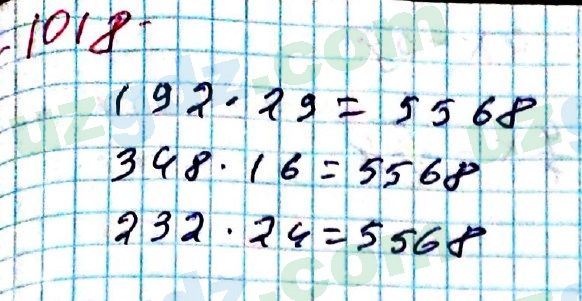 1018
192·29=5568
348·16=5568
232·24=5568
uzgdz.com